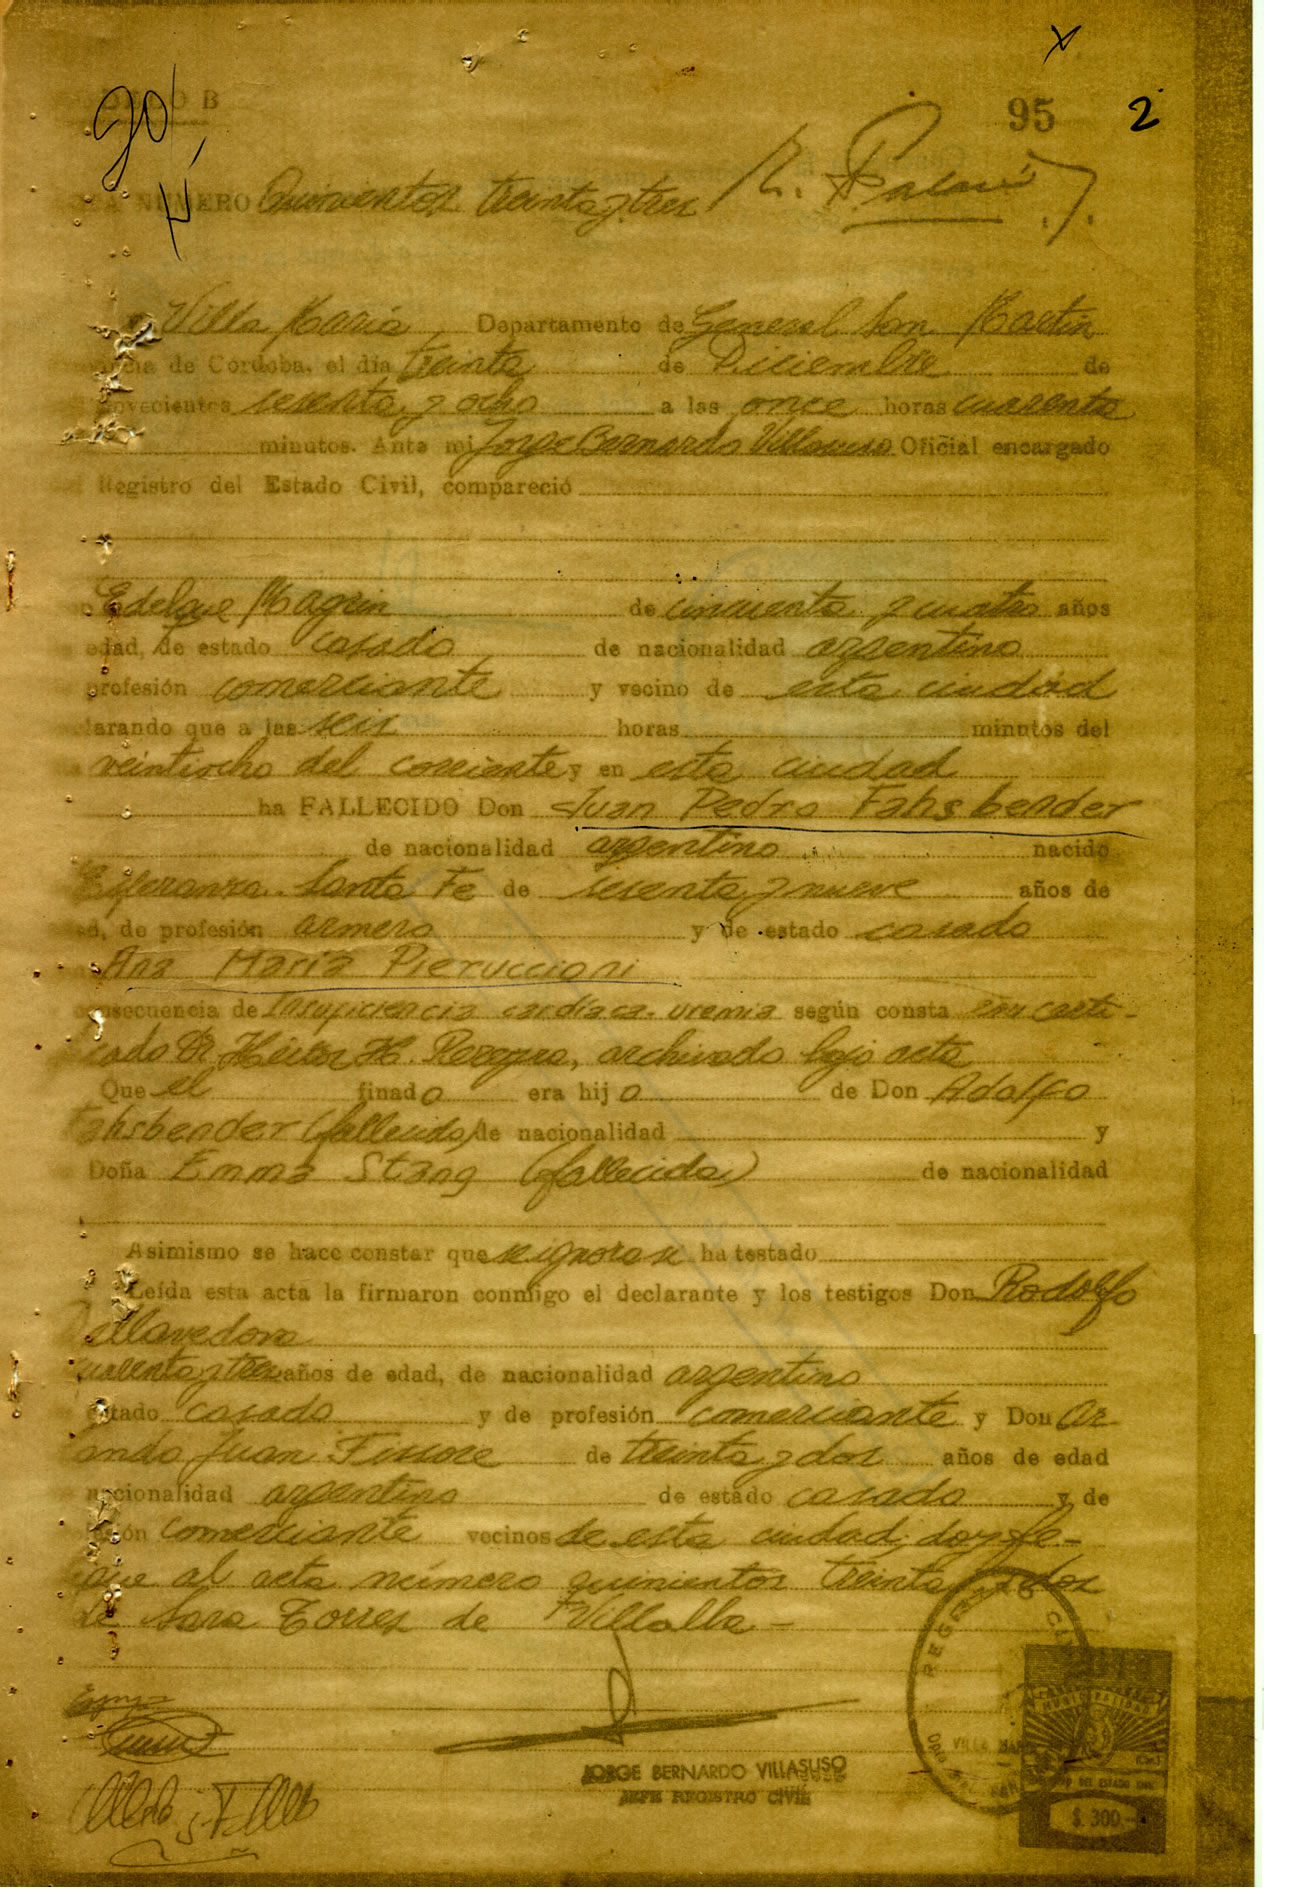 x
95 2
NUMERO Quinientos treinta y tres
Villa María, Departamento de General San Martín
de Córdoba, el día treinta de Diciembre de
novecientos sesenta y ocho a las once horas cuarenta
minutos. Ante mi Jorge Bernardo Villasuso Oficial encargado
Registro del Estado Civil, compareció
de cincuenta y cuatro años
edad, de estado casado de nacionalidad argentino
profesión comerciante y vecino de esta ciudad
larando que a las seis horas minutos del
veintiocho del corriente y en esta ciudad
ha FALLECIDO Don Juan Pedro Fahsbender
de nacionalidad argentino nacido
Esperanza Santa Fe de sesenta y nueve años de
ad, de profesión armero y de estado casado
Ana María Pieruccioni
nsecuencia de Insuficiencia cardíaca. uremia según consta en certi-
cado Dr Héctor H. archivado bajo acta
Que el finado era hijo de Don Adolfo
Fahsbender (fallecido) de nacionalidad y
Doña Emma Stang (fallecida) de nacionalidad
Asimismo se hace constar que se ignora si ha testado
Leída esta acta la firmaron conmigo el declarante y los testigos Don Rodolfo
Dellavedova
cuarenta y tres años de edad, de nacionalidad argentino
estado casado y de profesión comerciante y Don Ar-
mando Juan Fissore de treinta y dos años de edad
nacionalidad argentino de estado casado y de
comerciante vecinos de esta ciudad, doy fe-
que al acta número quinientos treinta y dos
de Sara Torres de Villalba -
REGISTRO CIVIL
VILLA MARIA
MUNICIPALIDAD
JORGE BERNARDO VILLASUSO
JEFE REGISTRO CIVIL
$. 300-